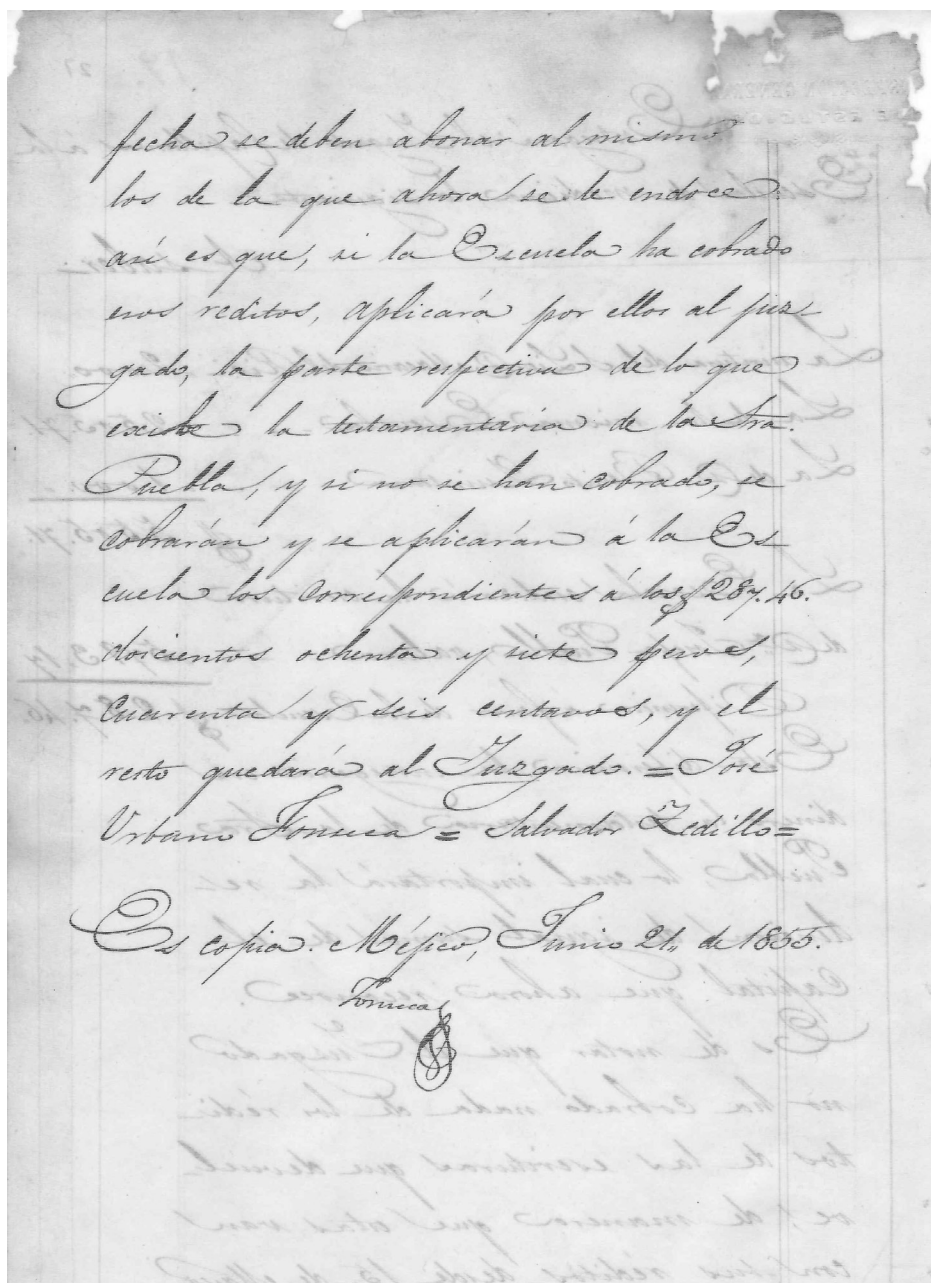 fecha se deben abonar al mismo
los de la que ahora se le endoce
así es que, si la Escuela ha cobrado
esos reditos, aplicará por ellos al juz-
gado, la parte respectiva de lo que
exisbe la testamentaria de la Sra.
Puebla, y si no se han cobrado, se
cobrarán y se aplicarán á la Es
cuela los correspondientes á los $287.46.
doscientos ochenta y siete pesos,
cuarenta y seis centavos, y el
resto quedará al Juzgado. = José
Urbano Fonseca = Salvador Zedillo =
Es copia. Méjico, Junio de 1855.
Fonseca